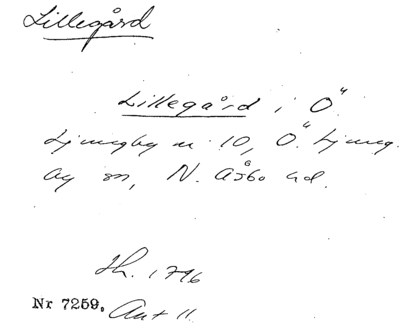 Lillegård
Lillegård i Ö
Ljungby nr 10, Ö. Ljung-
by sn, N. Åsbo hd.
Jh. 1796
Nr 7259. Akt 11